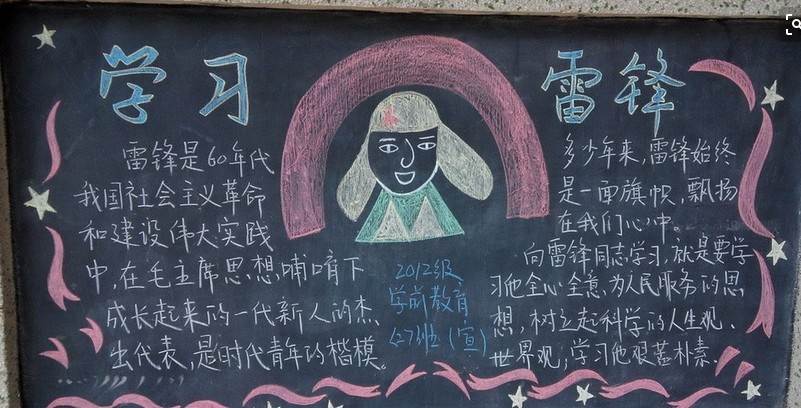 学习 雷锋
雷锋是60年代
我国社会主义革命
和建设伟大实践
中,在毛主席思想哺育下
成长起来的一代新人的杰
出代表,是时代青年的楷模。
2012级
学前教育
班(宣)
多少年来,雷锋始终
是一面旗帜,飘扬
在我们心中。
向雷锋同志学习,就是要学
习他全心全意,为人民服务的思
想,树立起科学的人生观、
世界观,学习他艰苦朴素.